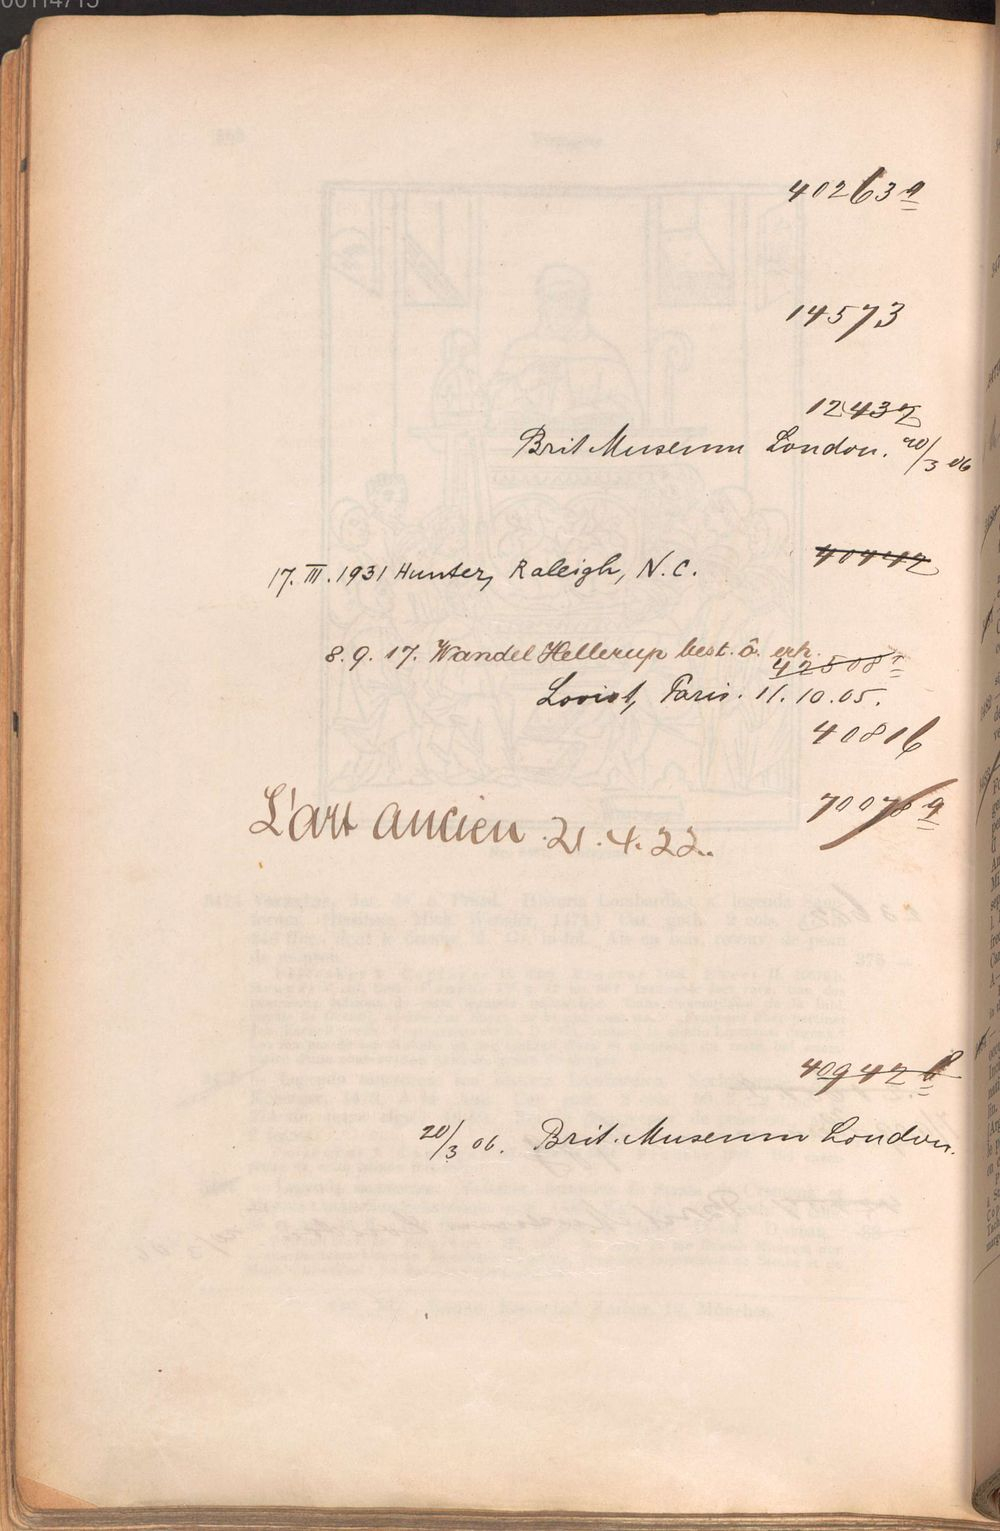 00114715
40263 a
14573
12437
Brit Museum London. 20/3 06
17. III. 1931 Hunter, Raleigh, N.C.
8.9.17. Wandel Hellerup best. erh.
42508
Paris. 11.10.05.
40816
L'art ancien 21.4.22.
70078 a
40942 b
20/3 06. Brit. Museum London.